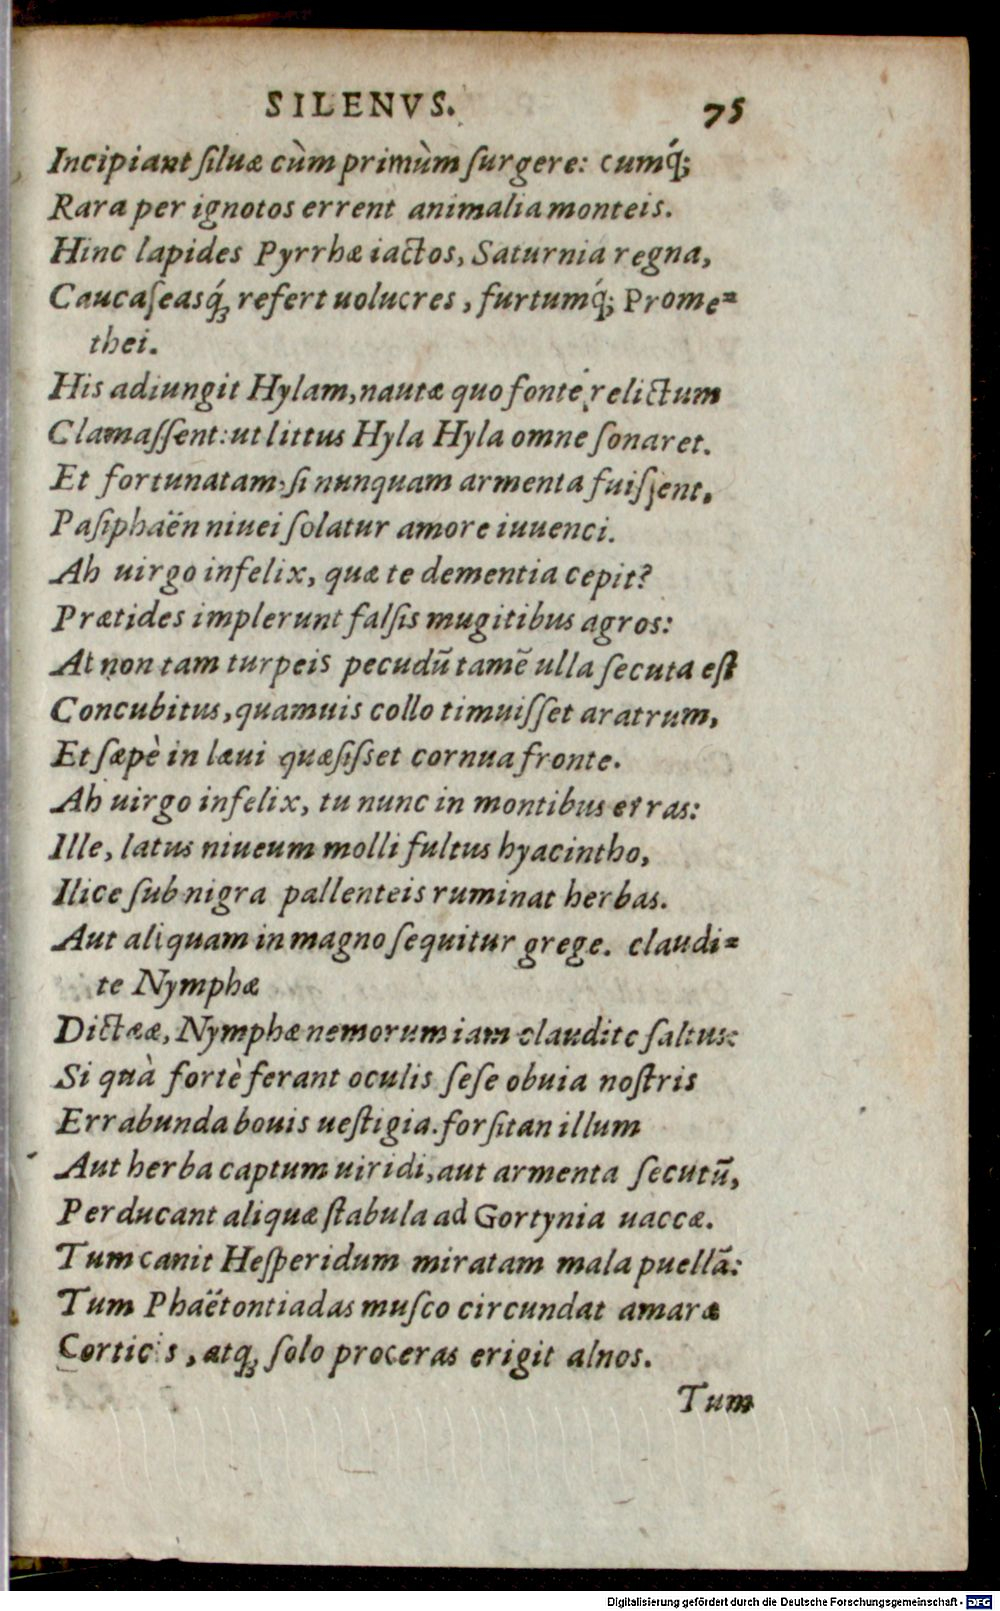 SILENVS. 75
Incipiant ſiluæ cùm primùm ſurgere: cumq́;
Rara per ignotos errent animalia monteis.
Hinc lapides Pyrrhæ iactos, Saturnia regna,
Caucaſeasq́; refert uolucres, furtumq́; Prome-
thei.
His adiungit Hylam, nautæ quo fonte relictum
Clamaſſent: ut littus Hyla Hyla omne ſonaret.
Et fortunatam, ſi nunquam armenta fuiſſent,
Paſiphaën niuei ſolatur amore iuuenci.
Ah uirgo infelix, quæ te dementia cepit?
Prætides implerunt falſis mugitibus agros:
At non tam turpeis pecudū tamē ulla ſecuta eſt
Concubitus, quamuis collo timuiſſet aratrum,
Et ſæpè in læui quæſiſset cornua fronte.
Ah uirgo infelix, tu nunc in montibus erras:
Ille, latus niueum molli fultus hyacintho,
Ilice ſub nigra pallenteis ruminat herbas.
Aut aliquam in magno ſequitur grege. claudi-
te Nymphæ
Dictææ, Nymphæ nemorum iam claudite ſaltus:
Si quà fortè ferant oculis ſeſe obuia noſtris
Errabunda bouis ueſtigia. forſitan illum
Aut herba captum uiridi, aut armenta ſecutū,
Perducant aliquæ ſtabula ad Gortynia uaccæ.
Tum canit Heſperidum miratam mala puellā:
Tum Phaëtontiadas muſco circundat amaræ
Corticis, atq; ſolo proceras erigit alnos.
Tum
Digitalisierung gefördert durch die Deutsche Forschungsgemeinschaft - DFG